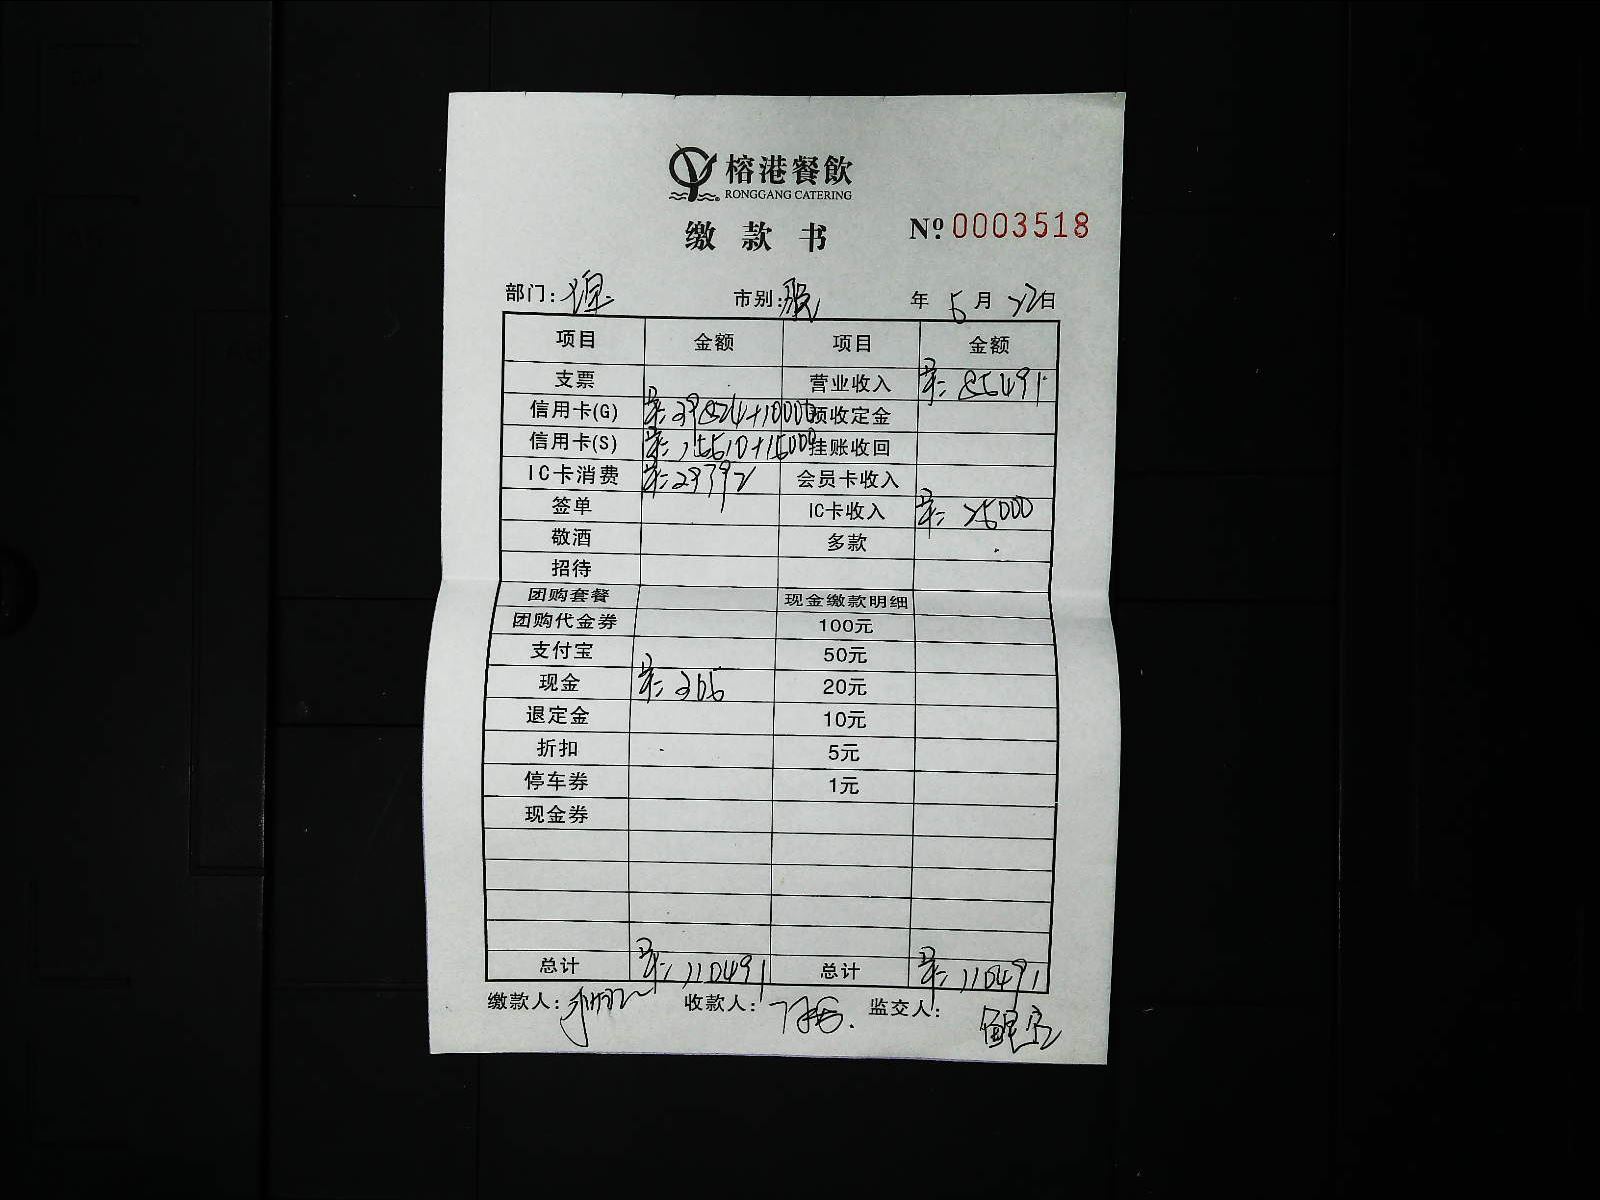 榕港餐飲
RONGGANG CATERING
缴款书 Nº 0003518
部门: 市别: 年 5 月 22 日
项目 金额 项目 金额
支票 营业收入 85491
信用卡(G) 39824+10000 预收定金
信用卡(S) 15510+15000 挂账收回
IC卡消费 29792 会员卡收入
签单 IC卡收入 25000
敬酒 多款
招待
团购套餐 现金缴款明细
团购代金券 100元
支付宝 50元
现金 365 20元
退定金 10元
折扣 5元
停车券 1元
现金券
总计 110491 总计 110491
缴款人: 收款人: 监交人: